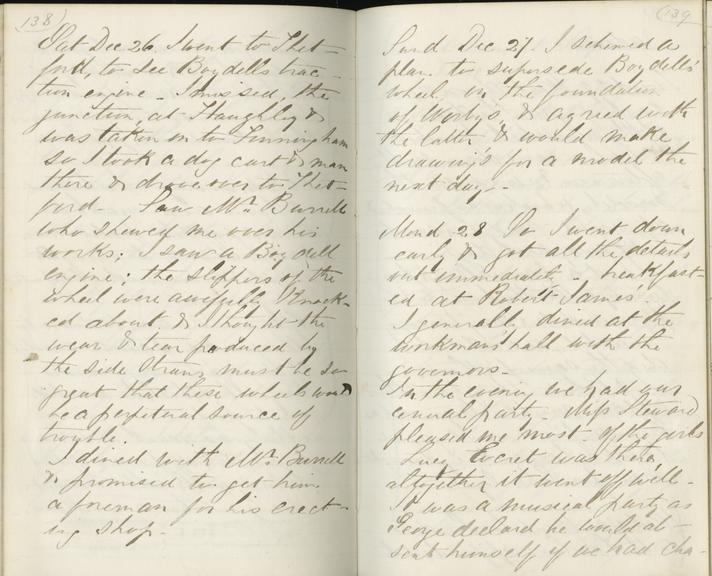 138)
Sat Dec 26. I went to Thet-
ford, to see Boydells trac-
tion engine - I missed the
junction at Haughley &
was taken on to Finningham
so I took a dog cart & man
there & drove over to Thet-
ford - Saw Mr. Burrell
who shewed me over his
works; I saw a Boydell
engine; the slippers of the
wheel were awfully knock-
ed about & I thought the
wear & tear produced by
the side strain must be so
great that these wheels would
be a perpetual source of
trouble.
I dined with Mr. Burrell
& promised to get him
a foreman for his erect-
ing shop -
(139
Sund Dec 27. I schemed a
plan to supersede Boydells
wheel on the foundation
of Worby's, & agreed with
the latter I would make
drawings for a model the
next day -
Mond 28 So I went down
early & got all the details
out immediately - breakfast-
ed at Robert James'.
I generally dined at the
workmans hall with the
governors -
In the evening we had our
party. Miss Steward
pleased me most of the girls
Lucy was there
altogether it went off well -
It was a musical party as
George declared he would ab-
sent himself if we had cha-